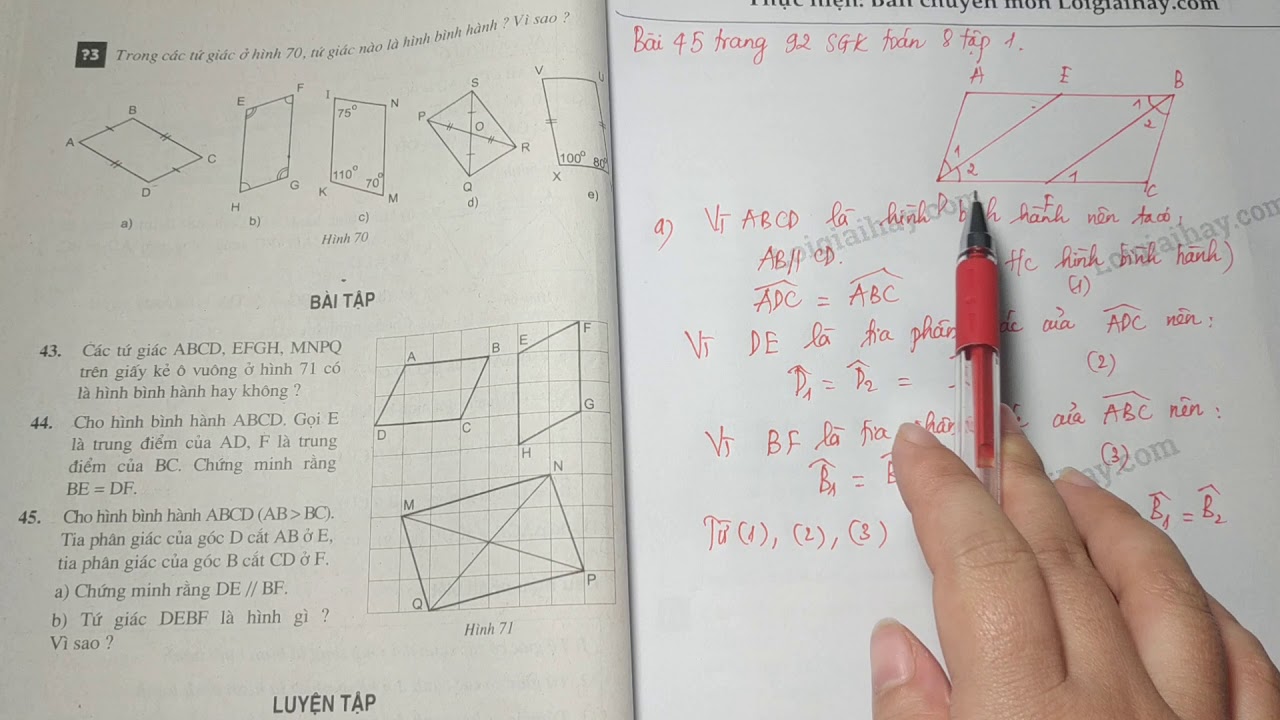 ?3 Trong các tứ giác ở hình 70, tứ giác nào là hình bình hành ? Vì sao ?
A B C D
a)
E F G H
b)
I N K M
75° 110° 70°
c)
S P O R Q
d)
V U X
100° 80°
e)
Hình 70
BÀI TẬP
43. Các tứ giác ABCD, EFGH, MNPQ
trên giấy kẻ ô vuông ở hình 71 có
là hình bình hành hay không ?
44. Cho hình bình hành ABCD. Gọi E
là trung điểm của AD, F là trung
điểm của BC. Chứng minh rằng
BE = DF.
45. Cho hình bình hành ABCD (AB > BC).
Tia phân giác của góc D cắt AB ở E,
tia phân giác của góc B cắt CD ở F.
a) Chứng minh rằng DE // BF.
b) Tứ giác DEBF là hình gì ?
Vì sao ?
A B D C
E F G H
M N P Q
Hình 71
LUYỆN TẬP
Thực hiện: Ban chuyên môn Loigiaihay.com
Bài 45 trang 92 SGK toán 8 tập 1.
A E B
1 2
1 2 1
D F C
a) Vì ABCD là hình bình hành nên ta có:
AB // CD. t/c hình bình hành)
ADC = ABC (1)
Vì DE là tia phân của ADC nên:
D1 = D2 = (2)
Vì BF là tia phân của ABC nên:
B1 = (3)
B1 = B2
Từ (1), (2), (3)
Loigiaihay.com